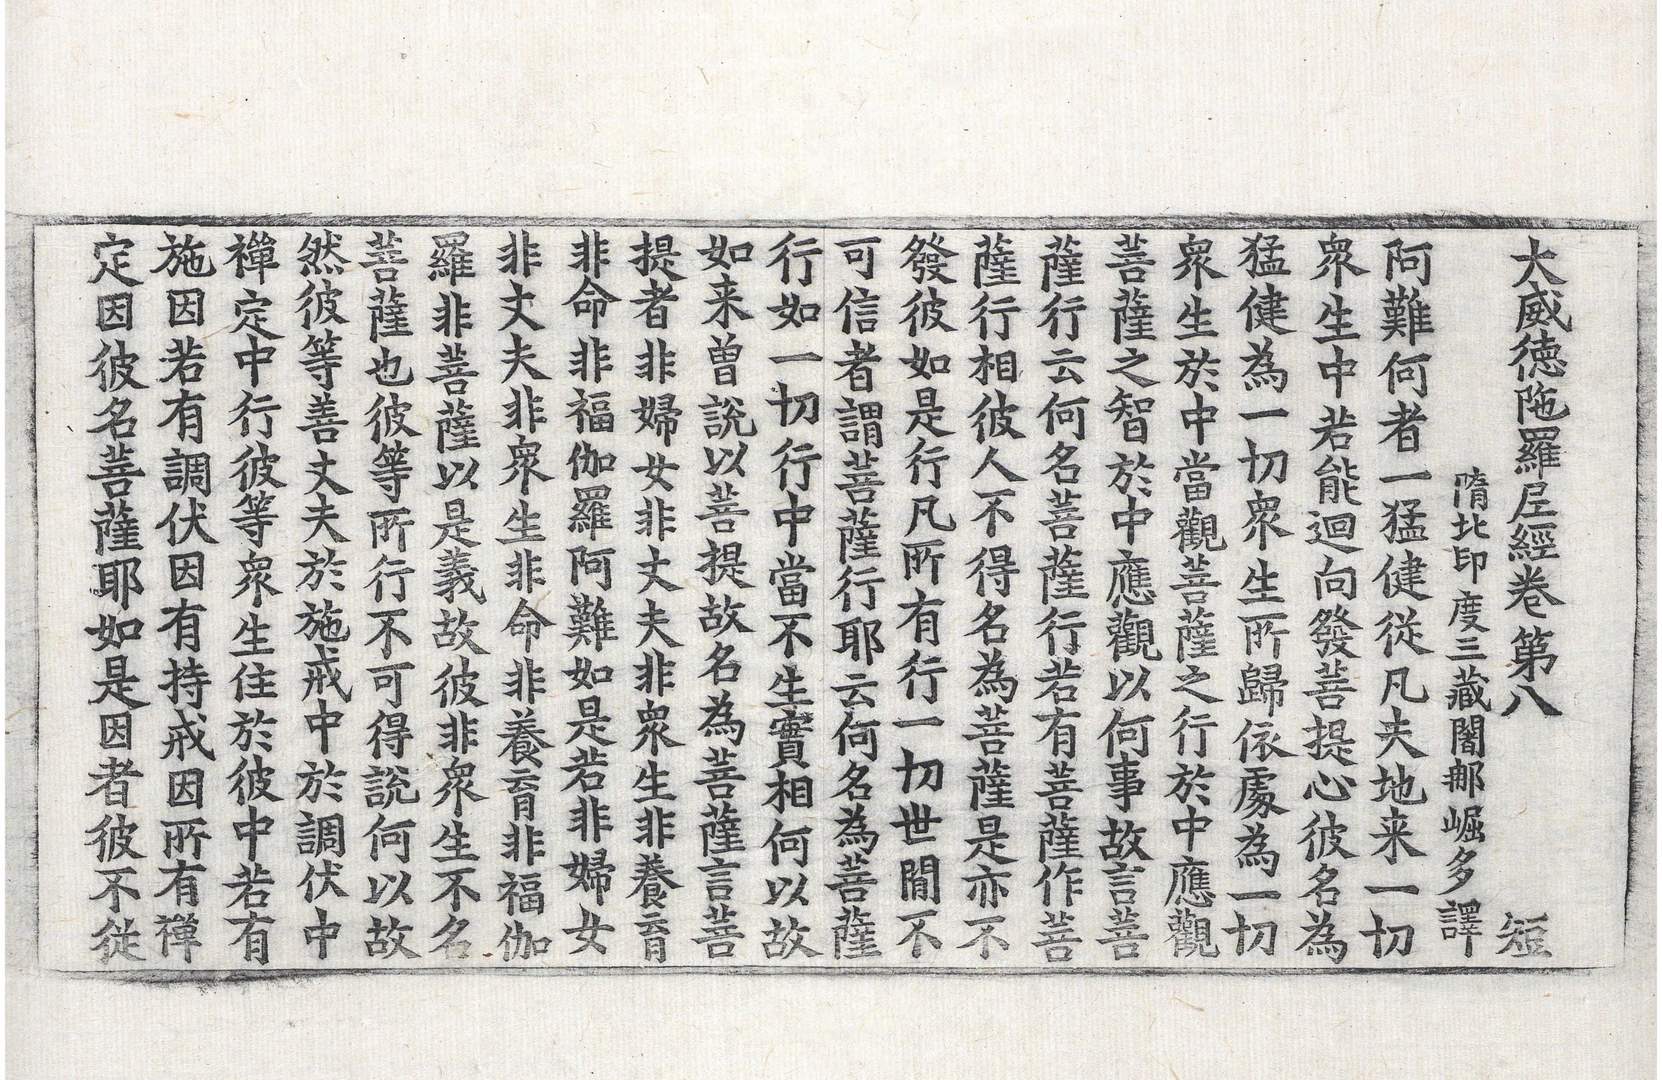 大威德陁羅尼經卷第八 短
隋北印度三藏闍那崛多譯
阿難何者一猛健從凡夫地来一切
衆生中若能迴向發菩提心彼名為
猛健為一切衆生所歸依處為一切
衆生於中當觀菩薩之行於中應觀
菩薩之智於中應觀以何事故言菩
薩行云何名菩薩行若有菩薩作菩
薩行相彼人不得名為菩薩是亦不
發彼如是行凡所有行一切世間不
可信者謂菩薩行耶云何名為菩薩
行如一切行中當不生實相何以故
如来曾說以菩提故名為菩薩言菩
提者非婦女非丈夫非衆生非養育
非命非福伽羅阿難如是若非婦女
非丈夫非衆生非命非養育非福伽
羅非菩薩以是義故彼非衆生不名
菩薩也彼等所行不可得說何以故
然彼等善丈夫於施戒中於調伏中
禪定中行彼等衆生住於彼中若有
施因若有調伏因有持戒因所有禪
定因彼名菩薩耶如是因者彼不從